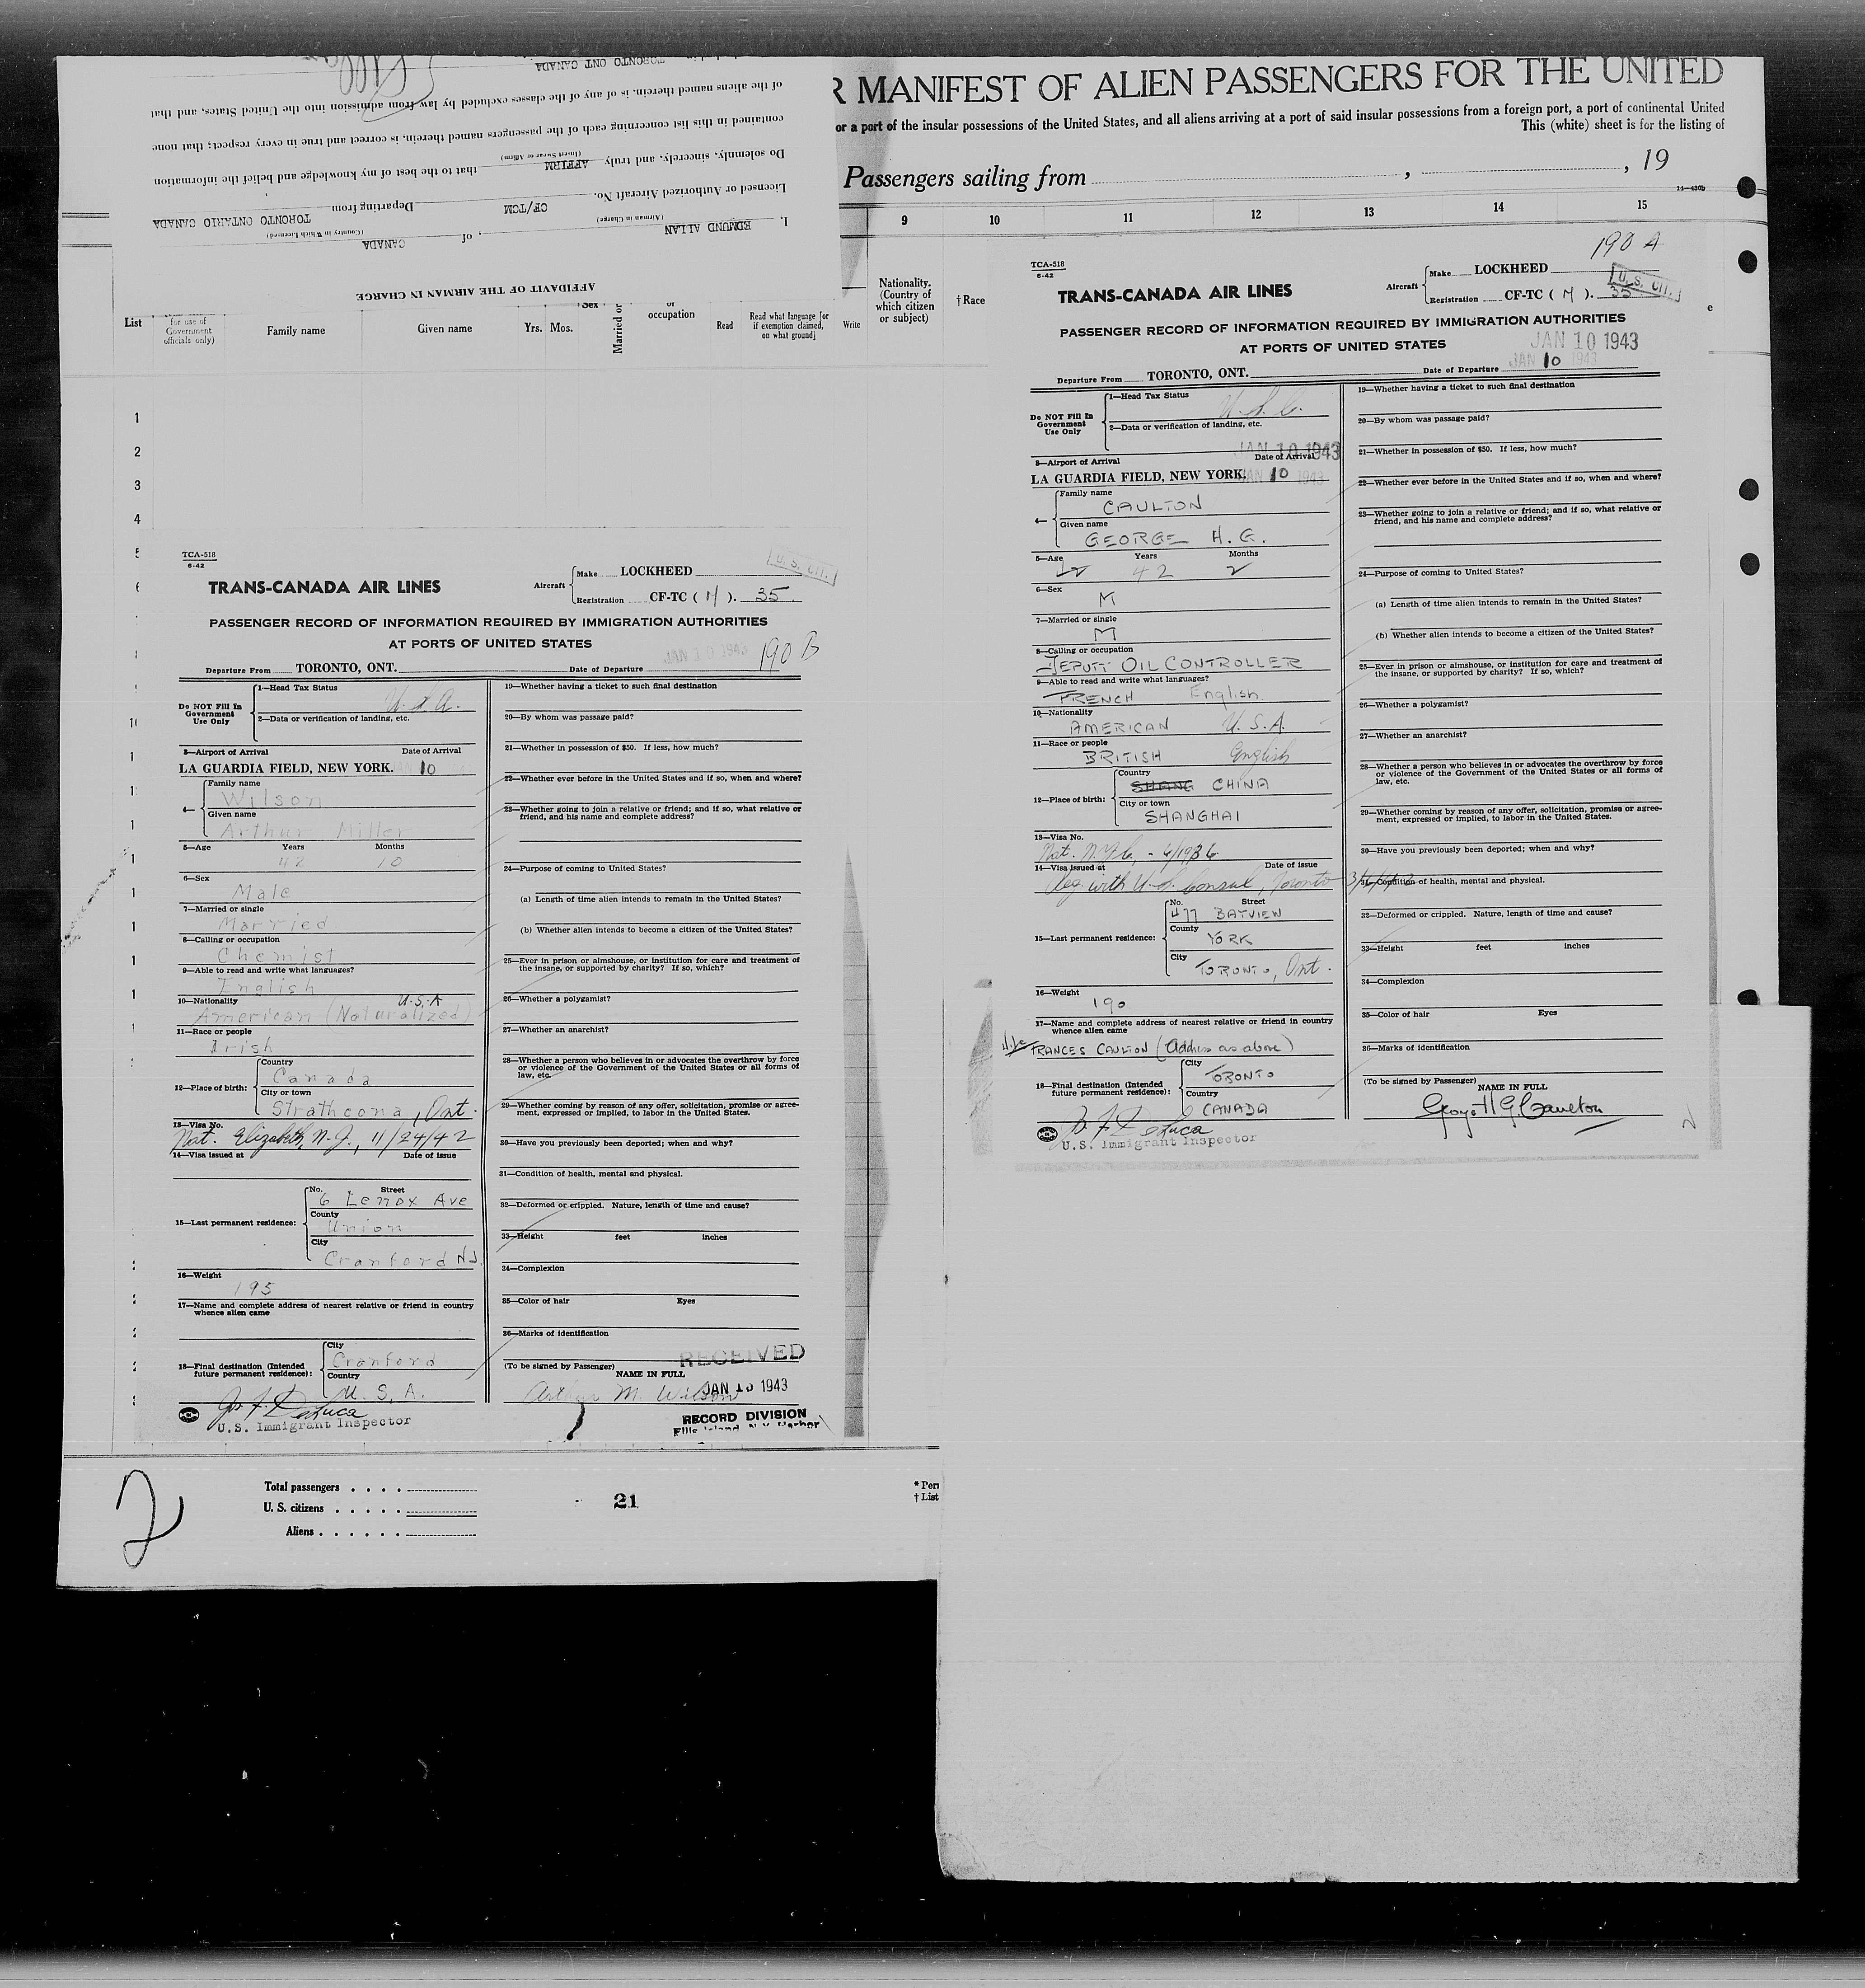 R MANIFEST OF ALIEN PASSENGERS FOR THE UNITED
or a port of the insular possessions of the United States, and all aliens arriving at a port of said insular possessions from a foreign port, a port of continental United
This (white) sheet is for the listing of
Passengers sailing from , , 19
9 10 11 12 13 14 15
Nationality. (Country of which citizen or subject)
† Race
TORONTO ONT CANADA
of the aliens named therein. is of any of the classes excluded by law from admission into the United States, and that
contained in this list concerning each of the passengers named therein, is correct and true in every respect; that none
Do solemnly, sincerely, and truly AFFIRM that to the best of my knowledge and belief the information
(Insert Swear or Affirm)
Licensed or Authorized Aircraft No. CF/TCM Departing from TORONTO ONTARIO CANADA
(Airman in Charge) (Country in Which Licensed)
I. EDMUND ALLAN , of CANADA
AFFIDAVIT OF THE AIRMAN IN CHARGE
List
for use of Government officials only)
Family name
Given name
Yrs. Mos.
Sex
Married or
or occupation
Read
Read what language [or if exemption claimed, on what ground]
Write
1
2
3
4
TCA-518
6-42
U. S. CIT.
TRANS-CANADA AIR LINES
Aircraft
Make LOCKHEED
Registration CF-TC ( M ). 35
PASSENGER RECORD OF INFORMATION REQUIRED BY IMMIGRATION AUTHORITIES
AT PORTS OF UNITED STATES
JAN 10 1943
190 B
Departure From TORONTO, ONT. Date of Departure
Do NOT Fill In Government Use Only
1—Head Tax Status
2—Data or verification of landing, etc.
3—Airport of Arrival Date of Arrival
LA GUARDIA FIELD, NEW YORK. 10
4—
Family name
Wilson
Given name
Arthur Miller
5—Age Years Months
42 10
6—Sex
Male
7—Married or single
Married
8—Calling or occupation
Chemist
9—Able to read and write what languages?
English
10—Nationality U.S.A
American (Naturalized)
11—Race or people
Irish
12—Place of birth:
Country
Canada
City or town
Strathcona, Ont.
13—Visa No.
Nat. Elizabeth, N.J., 11/24/42
14—Visa issued at Date of issue
15—Last permanent residence:
No. Street
6 Lenox Ave
County
Union
City
Cranford NJ.
16—Weight
195
17—Name and complete address of nearest relative or friend in country whence alien came
18—Final destination (Intended future permanent residence):
City
Cranford
Country
U. S. A.
U.S. Immigrant Inspector
19—Whether having a ticket to such final destination
20—By whom was passage paid?
21—Whether in possession of $50. If less, how much?
22—Whether ever before in the United States and if so, when and where?
23—Whether going to join a relative or friend; and if so, what relative or friend, and his name and complete address?
24—Purpose of coming to United States?
(a) Length of time alien intends to remain in the United States?
(b) Whether alien intends to become a citizen of the United States?
25—Ever in prison or almshouse, or institution for care and treatment of the insane, or supported by charity? If so, which?
26—Whether a polygamist?
27—Whether an anarchist?
28—Whether a person who believes in or advocates the overthrow by force or violence of the Government of the United States or all forms of law, etc.
29—Whether coming by reason of any offer, solicitation, promise or agreement, expressed or implied, to labor in the United States.
30—Have you previously been deported; when and why?
31—Condition of health, mental and physical.
32—Deformed or crippled. Nature, length of time and cause?
33—Height feet inches
34—Complexion
35—Color of hair Eyes
36—Marks of identification
(To be signed by Passenger)
NAME IN FULL
Arthur M. Wilson
RECEIVED
JAN 13 1943
RECORD DIVISION
Ellis Island N.Y. Harbor
2
Total passengers
U. S. citizens
Aliens
21
* Per
† List
190 A
TCA-518
6-42
TRANS-CANADA AIR LINES
Aircraft
Make LOCKHEED
Registration CF-TC ( M ). 35
U. S. CIT.
PASSENGER RECORD OF INFORMATION REQUIRED BY IMMIGRATION AUTHORITIES
AT PORTS OF UNITED STATES
JAN 10 1943
JAN 10 1943
Departure From TORONTO, ONT. Date of Departure
Do NOT Fill In Government Use Only
1—Head Tax Status
U.S.C.
2—Data or verification of landing, etc.
JAN 10 1943
3—Airport of Arrival Date of Arrival
LA GUARDIA FIELD, NEW YORK. JAN 10 1943
4—
Family name
CAULTON
Given name
GEORGE H. G.
5—Age Years Months
42 2
6—Sex
M
7—Married or single
M
8—Calling or occupation
DEPUTY OIL CONTROLLER
9—Able to read and write what languages?
FRENCH English
10—Nationality
AMERICAN U.S.A.
11—Race or people
BRITISH English
12—Place of birth:
Country
SHANG CHINA
City or town
SHANGHAI
13—Visa No.
Nat. N.Y.C. - 6/1936
14—Visa issued at Date of issue
Reg. with U.S. Consul, Toronto
15—Last permanent residence:
No. Street
477 BAYVIEW
County
YORK
City
TORONTO, Ont.
16—Weight
190
17—Name and complete address of nearest relative or friend in country whence alien came
Wife FRANCES CAULTON (Address as above)
18—Final destination (Intended future permanent residence):
City
TORONTO
Country
CANADA
U.S. Immigrant Inspector
19—Whether having a ticket to such final destination
20—By whom was passage paid?
21—Whether in possession of $50. If less, how much?
22—Whether ever before in the United States and if so, when and where?
23—Whether going to join a relative or friend; and if so, what relative or friend, and his name and complete address?
24—Purpose of coming to United States?
(a) Length of time alien intends to remain in the United States?
(b) Whether alien intends to become a citizen of the United States?
25—Ever in prison or almshouse, or institution for care and treatment of the insane, or supported by charity? If so, which?
26—Whether a polygamist?
27—Whether an anarchist?
28—Whether a person who believes in or advocates the overthrow by force or violence of the Government of the United States or all forms of law, etc.
29—Whether coming by reason of any offer, solicitation, promise or agreement, expressed or implied, to labor in the United States.
30—Have you previously been deported; when and why?
31—Condition of health, mental and physical.
32—Deformed or crippled. Nature, length of time and cause?
33—Height feet inches
34—Complexion
35—Color of hair Eyes
36—Marks of identification
(To be signed by Passenger)
NAME IN FULL
George H G Caulton